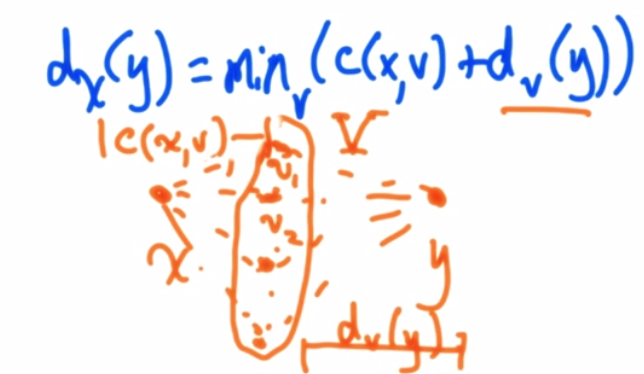 dₓ(y) = minᵥ(c(x,v) + dᵥ(y))
c(x,v)
V
v₁
v₂
x
y
dᵥ(y)